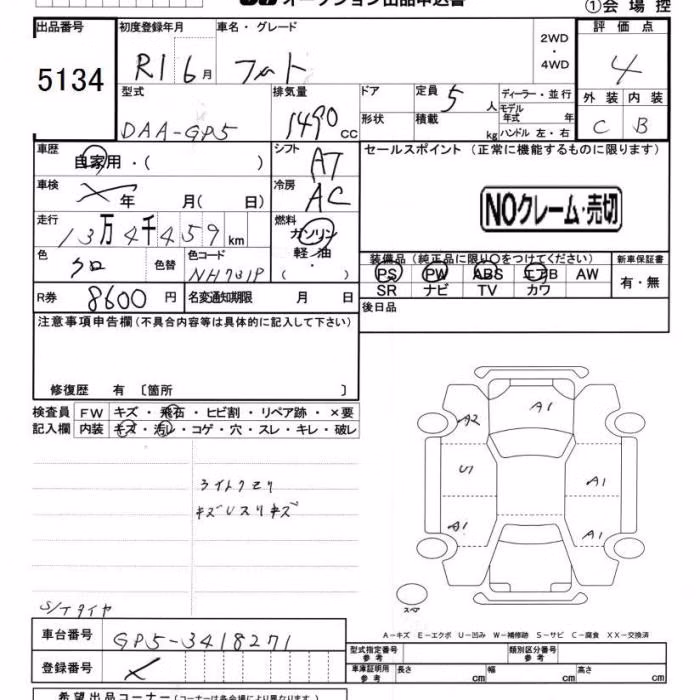 オークション出品申込書
①会場控
出品番号 初度登録年月 車名・グレード 2WD・4WD 評価点
5134 R1 6月 フィット 4
型式 排気量 ドア 定員 5人 ディーラー・並行 外装 内装
DAA-GP5 1490cc 形状 積載 kg モデル年式 年 C B
ハンドル 左・右
車歴 自家用・( ) シフト AT セールスポイント(正常に機能するものに限ります)
車検 年 月( 日) 冷房 AC
NOクレーム・売切
走行 13万4千459km 燃料 ガソリン 軽油 ( ・ )
色 クロ 色替 色コード NH731P
装備品(純正品に限り○をつけてください) 新車保証書
PS PW ABS エアB AW 有・無
SR ナビ TV カワ
R券 8600円 名変通知期限 月 日 後日品
注意事項申告欄(不具合内容等は具体的に記入して下さい)
修復歴 有 〔箇所 〕
検査員 FW キズ・飛石・ヒビ割・リペア跡・×要
記入欄 内装 キズ・汚レ・コゲ・穴・スレ・キレ・破レ
A2 A1
U1 A1
A1 A1
ライトクモリ
キズUスリキズ
スペア
S/Tタイヤ
A-キズ E-エクボ U-凹み W-補修跡 S-サビ C-腐食 XX-交換済
車台番号 GP5-3418271
型式指定番号 参考 類別区分番号 参考
登録番号
車庫証明用 参考 長さ cm 幅 cm 高さ cm
希望出品コーナー(コーナーは各会場により異なります)